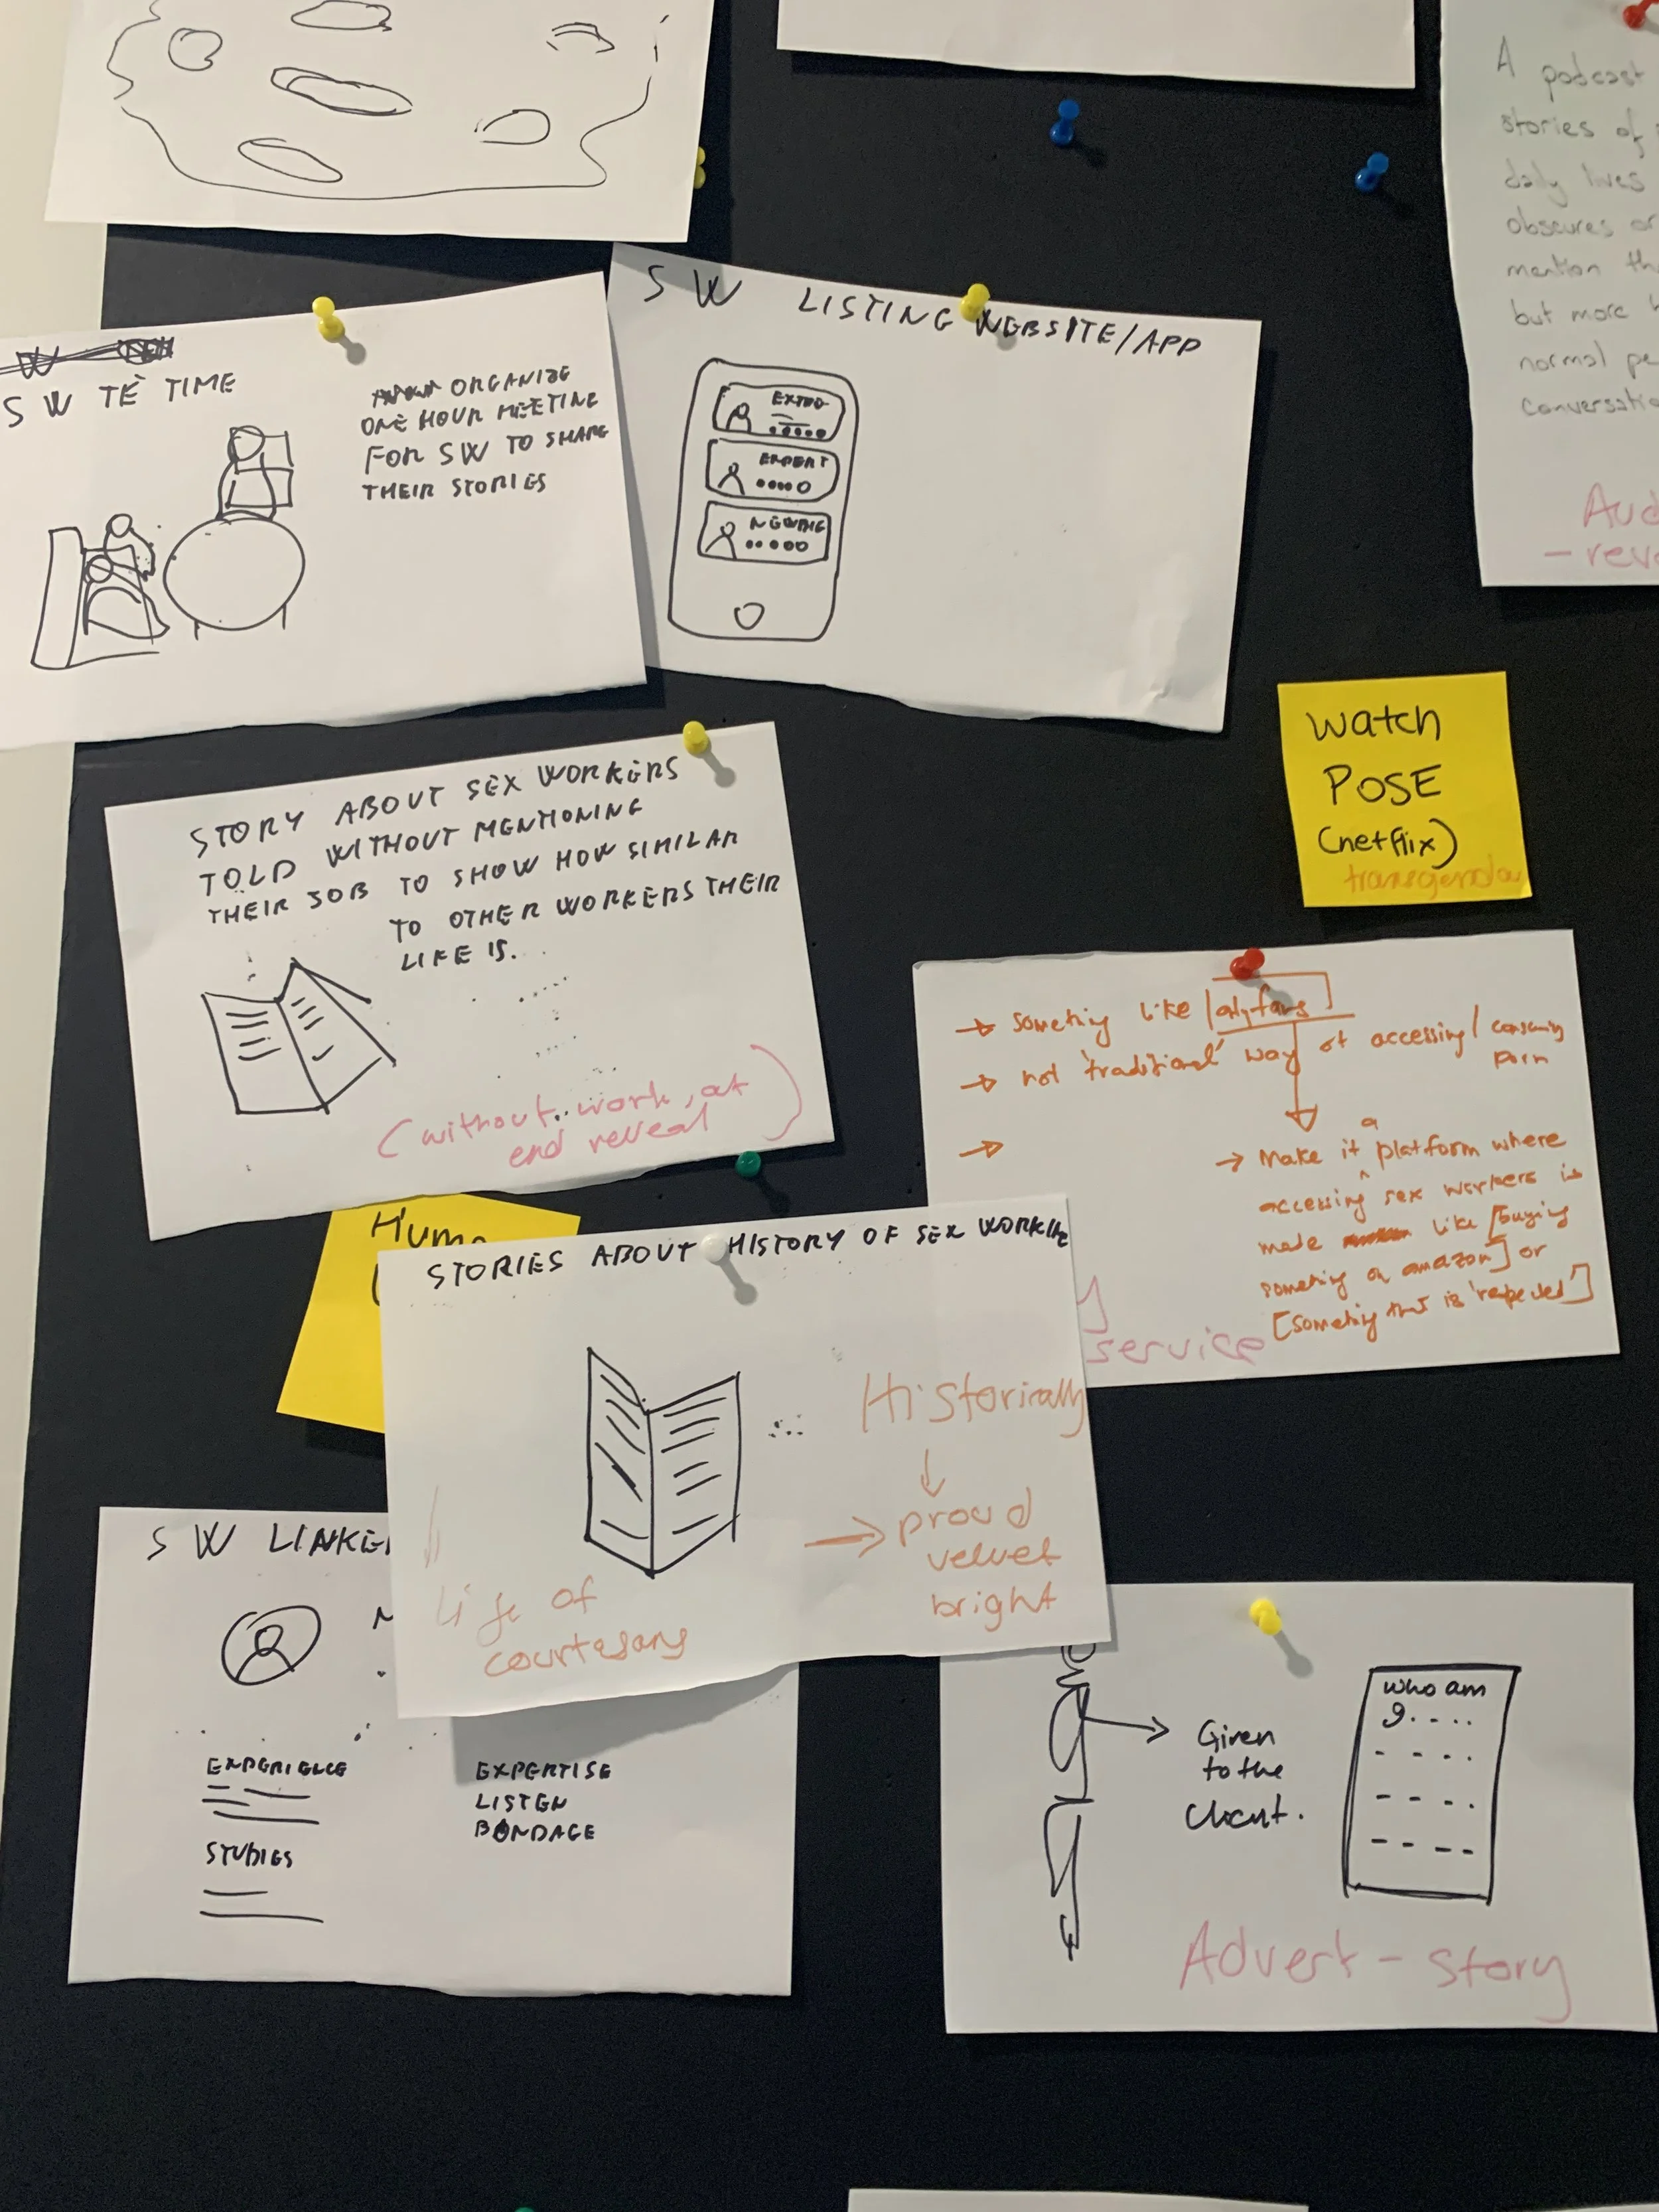 SW TÈ TIME
ORGANIZE
ONE HOUR MEETING
FOR SW TO SHARE
THEIR STORIES
SW LISTING WEBSITE/APP
EXPERT
A podcast
stories of
daily lives
obscures or
mention th
but more
normal pe
conversatio
Aud
- reve
STORY ABOUT SEX WORKERS
TOLD WITHOUT MENTIONING
THEIR JOB TO SHOW HOW SIMILAR
TO OTHER WORKERS THEIR
LIFE IS.
(without work, at
end reveal)
watch
POSE
(netflix)
transgender
→ something like [onlyfans]
→ not 'traditional' way of accessing/consuming
porn
→
→ Make it a platform where
accessing sex workers is
made like [buying
something on amazon] or
[something that is 'respected']
service
Huma
STORIES ABOUT HISTORY OF SEX WORKING
Historically
↓
→ proud
velvet
bright
Life of
courtesans
SW LINKE
EXPERIENCE
STUDIES
EXPERTISE
LISTEN
BONDAGE
Given
to the
client.
who am
I....
Advert - story